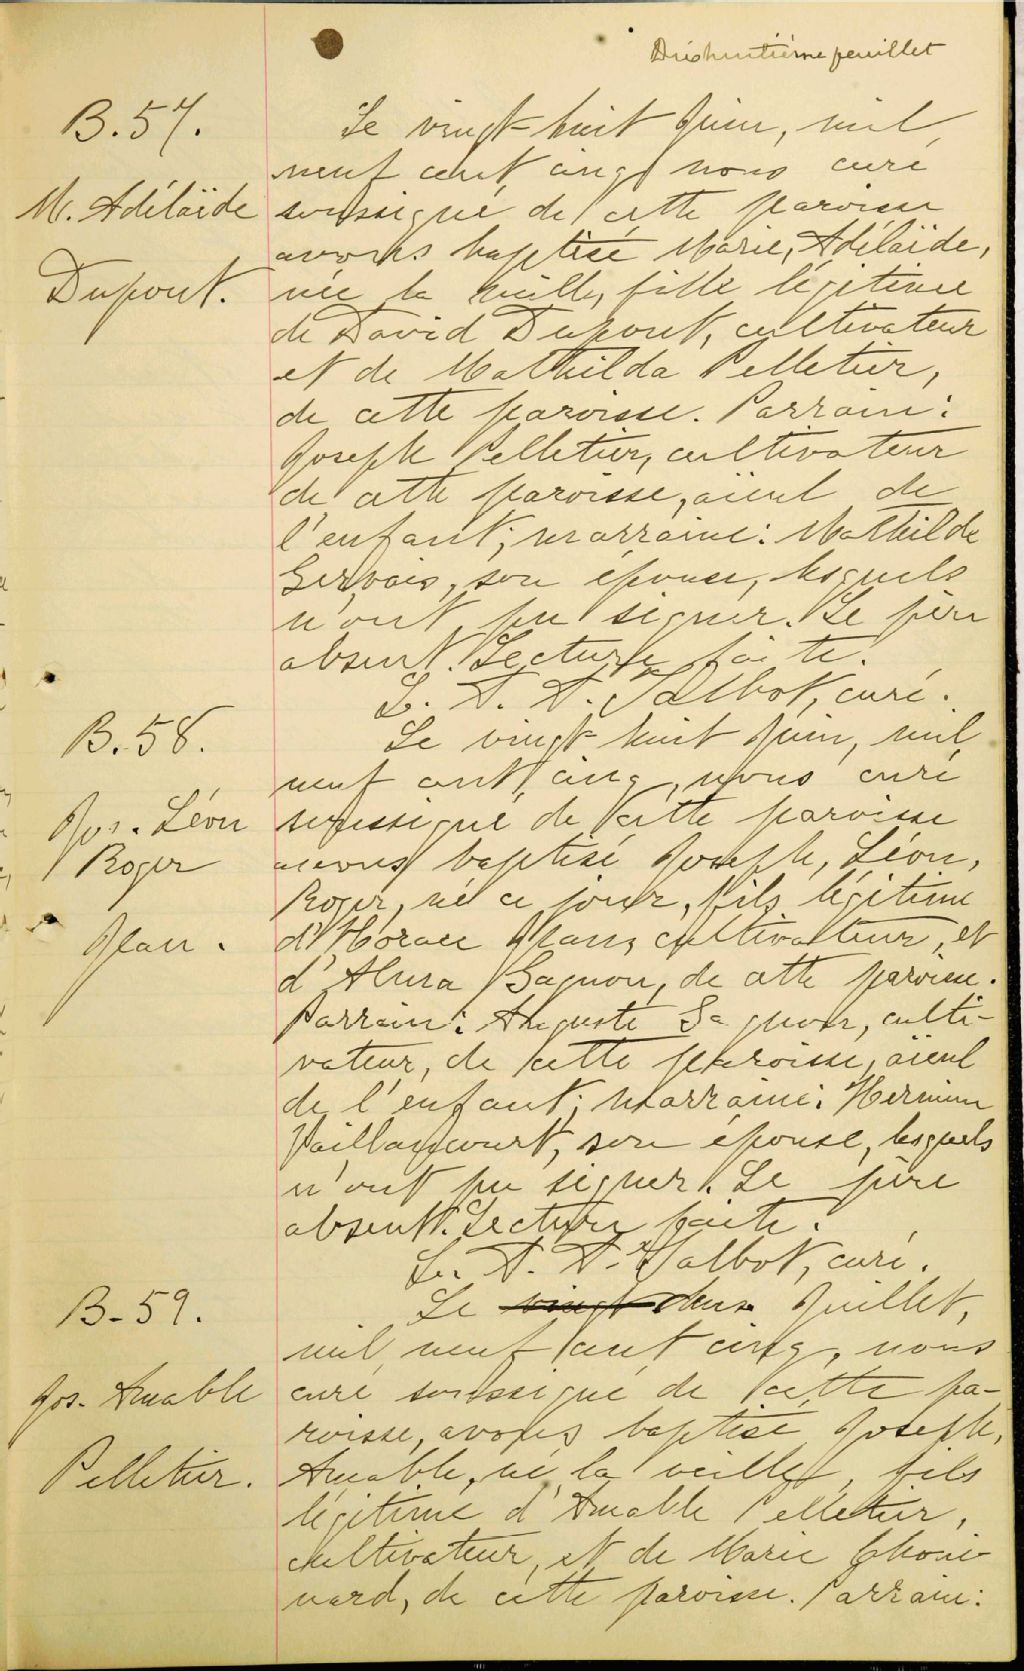 Dixhuitième feuillet
B. 57.
M. Adélaïde
Dupont.
Le vingt-huit Juin, mil
neuf cent cinq, nous curé
soussigné de cette paroisse
avons baptisé Marie, Adélaïde,
née la veille, fille légitime
de David Dupont, cultivateur
et de Mathilda Pelletier,
de cette paroisse. Parrain:
Joseph Pelletier, cultivateur
de cette paroisse, aïeul de
l'enfant; marraine: Mathilde
Gervais, son épouse, lesquels
n'ont pu signer. Le père
absent. Lecture faite.
L. A. A. Talbot, curé.
B. 58.
Jos. Léon
Roger
Jean.
Le vingt-huit Juin, mil
neuf cent cinq, nous curé
soussigné de cette paroisse
avons baptisé Joseph, Léon,
Roger, né ce jour, fils légitime
d'Horace Jean, cultivateur, et
d'Alma Gagnon, de cette paroisse.
Parrain: Auguste Gagnon, culti-
vateur, de cette paroisse, aïeul
de l'enfant; marraine: Hermine
Vaillancourt, son épouse, lesquels
n'ont pu signer. Le père
absent. Lecture faite.
L. A. A. Talbot, curé.
B-59.
Jos. Amable
Pelletier.
Le vingt deux Juillet,
mil neuf cent cinq, nous
curé soussigné de cette pa-
roisse, avons baptisé Joseph,
Amable, né la veille, fils
légitime d'Amable Pelletier,
cultivateur, et de Marie Choui-
nard, de cette paroisse. Parrain: